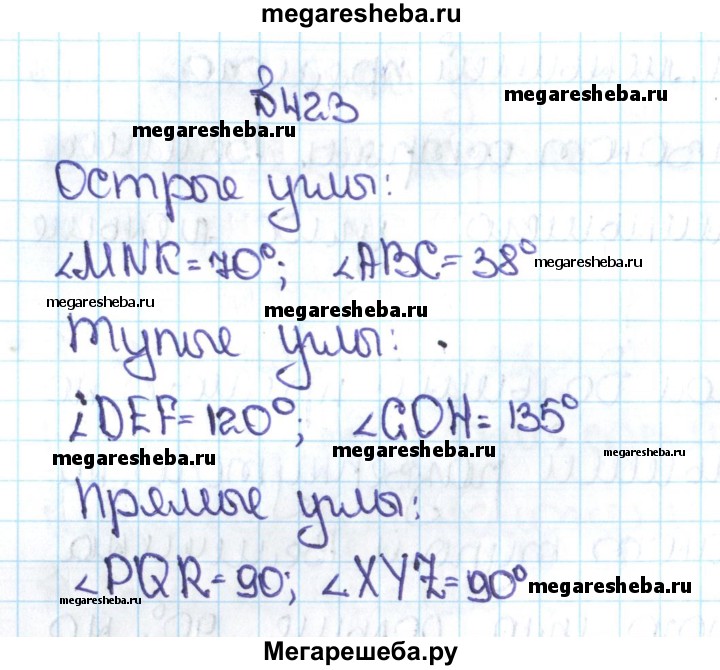 megaresheba.ru
В 423
megaresheba.ru
megaresheba.ru
Острые углы:
∠MNK=70°; ∠ABC=38°
megaresheba.ru
megaresheba.ru
megaresheba.ru
Тупые углы:
∠DEF=120°; ∠GOH=135°
megaresheba.ru
megaresheba.ru
megaresheba.ru
Прямые углы:
∠PQR=90; ∠XYZ=90°
megaresheba.ru
megaresheba.ru
Мегарешеба.ру